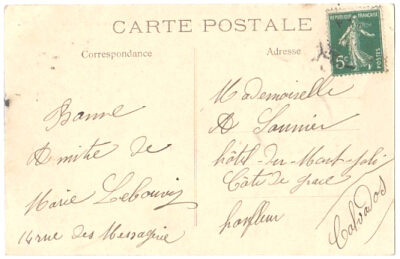 CARTE POSTALE
Correspondance
Adresse
REPUBLIQUE FRANÇAISE
5c
POSTES
Bonne
Amitié de
Marie Lebouvis
14 rue des Messagerie
Mademoiselle
A Saunier
hôtel-du-Mont-Joli
Côte de grace
honfleur
Calvados